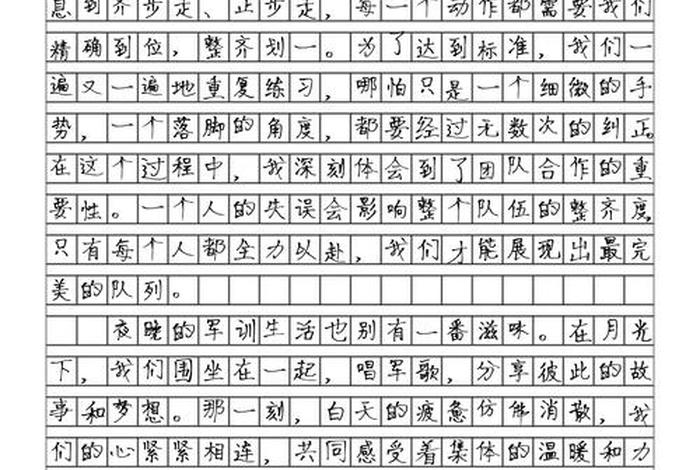 息到齐步走、止步走，每一个动作都需要我们
精确到位，整齐划一。为了达到标准，我们一
遍又一遍地重复练习，哪怕只是一个细微的手
势，一个落脚的角度，都要经过无数次的纠正。
在这个过程中，我深刻体会到了团队合作的重
要性。一个人的失误会影响整个队伍的整齐度，
只有每个人都全力以赴，我们才能展现出最完
美的队列。
夜晚的军训生活也别有一番滋味。在月光
下，我们围坐在一起，唱军歌，分享彼此的故
事和梦想。那一刻，白天的疲惫仿佛消散，我
们的心紧紧相连，共同感受着集体的温暖和力